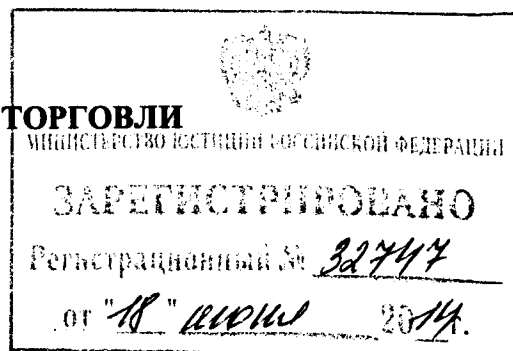 ТОРГОВЛИ
МИНИСТЕРСТВО ЮСТИЦИИ РОССИЙСКОЙ ФЕДЕРАЦИИ
ЗАРЕГИСТРИРОВАНО
Регистрационный № 32747
от "18" июня 2014г.